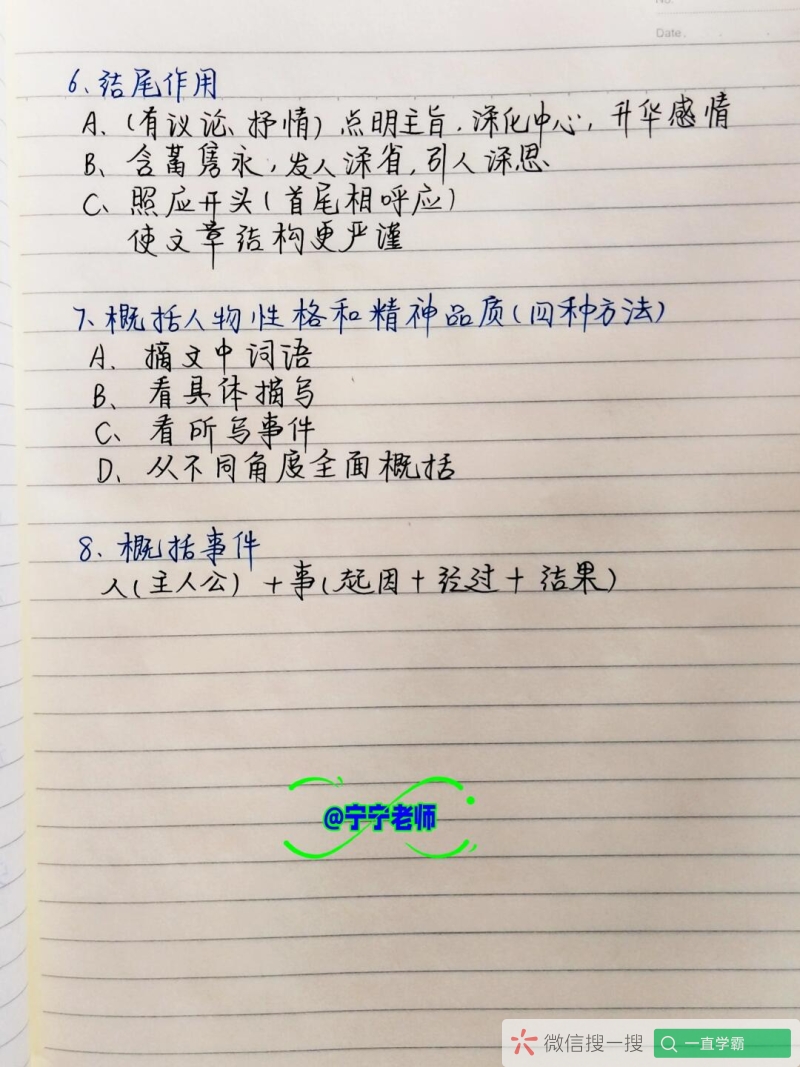 No.
Date.
6、结尾作用
A、(有议论、抒情)点明主旨,深化中心,升华感情
B、含蓄隽永,发人深省,引人深思
C、照应开头(首尾相呼应)
使文章结构更严谨
7、概括人物性格和精神品质(四种方法)
A、摘文中词语
B、看具体描写
C、看所写事件
D、从不同角度全面概括
8、概括事件
人(主人公)+事(起因+经过+结果)
@宁宁老师
微信搜一搜 一直学霸